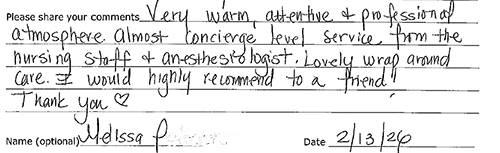 Please share your comments Very warm, attentive & professional
atmosphere. Almost concierge level service from the
nursing staff & anesthesiologist. Lovely wrap around
care. I would highly recommend to a friend!
Thank you ♡
Name (optional) Melissa P Date 2/13/26